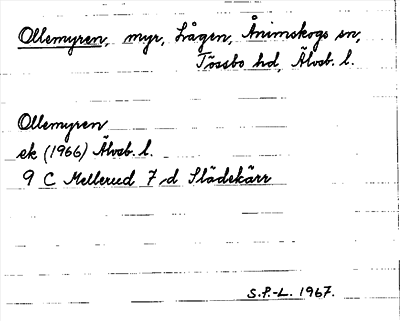 Ollemyren, myr, Lågen, Ånimskogs sn,
Tössbo hd, Älvsb. l.
Ollemyren
ek (1966) Älvsb. l.
9 C Mellerud 7 d Slädekärr
S.P.-L. 1967.